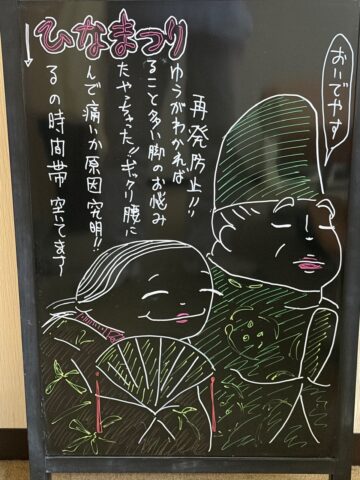 ひなまつり
るの時間帯 空いてます
んで痛いか原因究明!!
たやっちゃった!!ギックリ腰に
ること多い脚のお悩み
ゆうがわかれば
再発防止!!
おいでやす